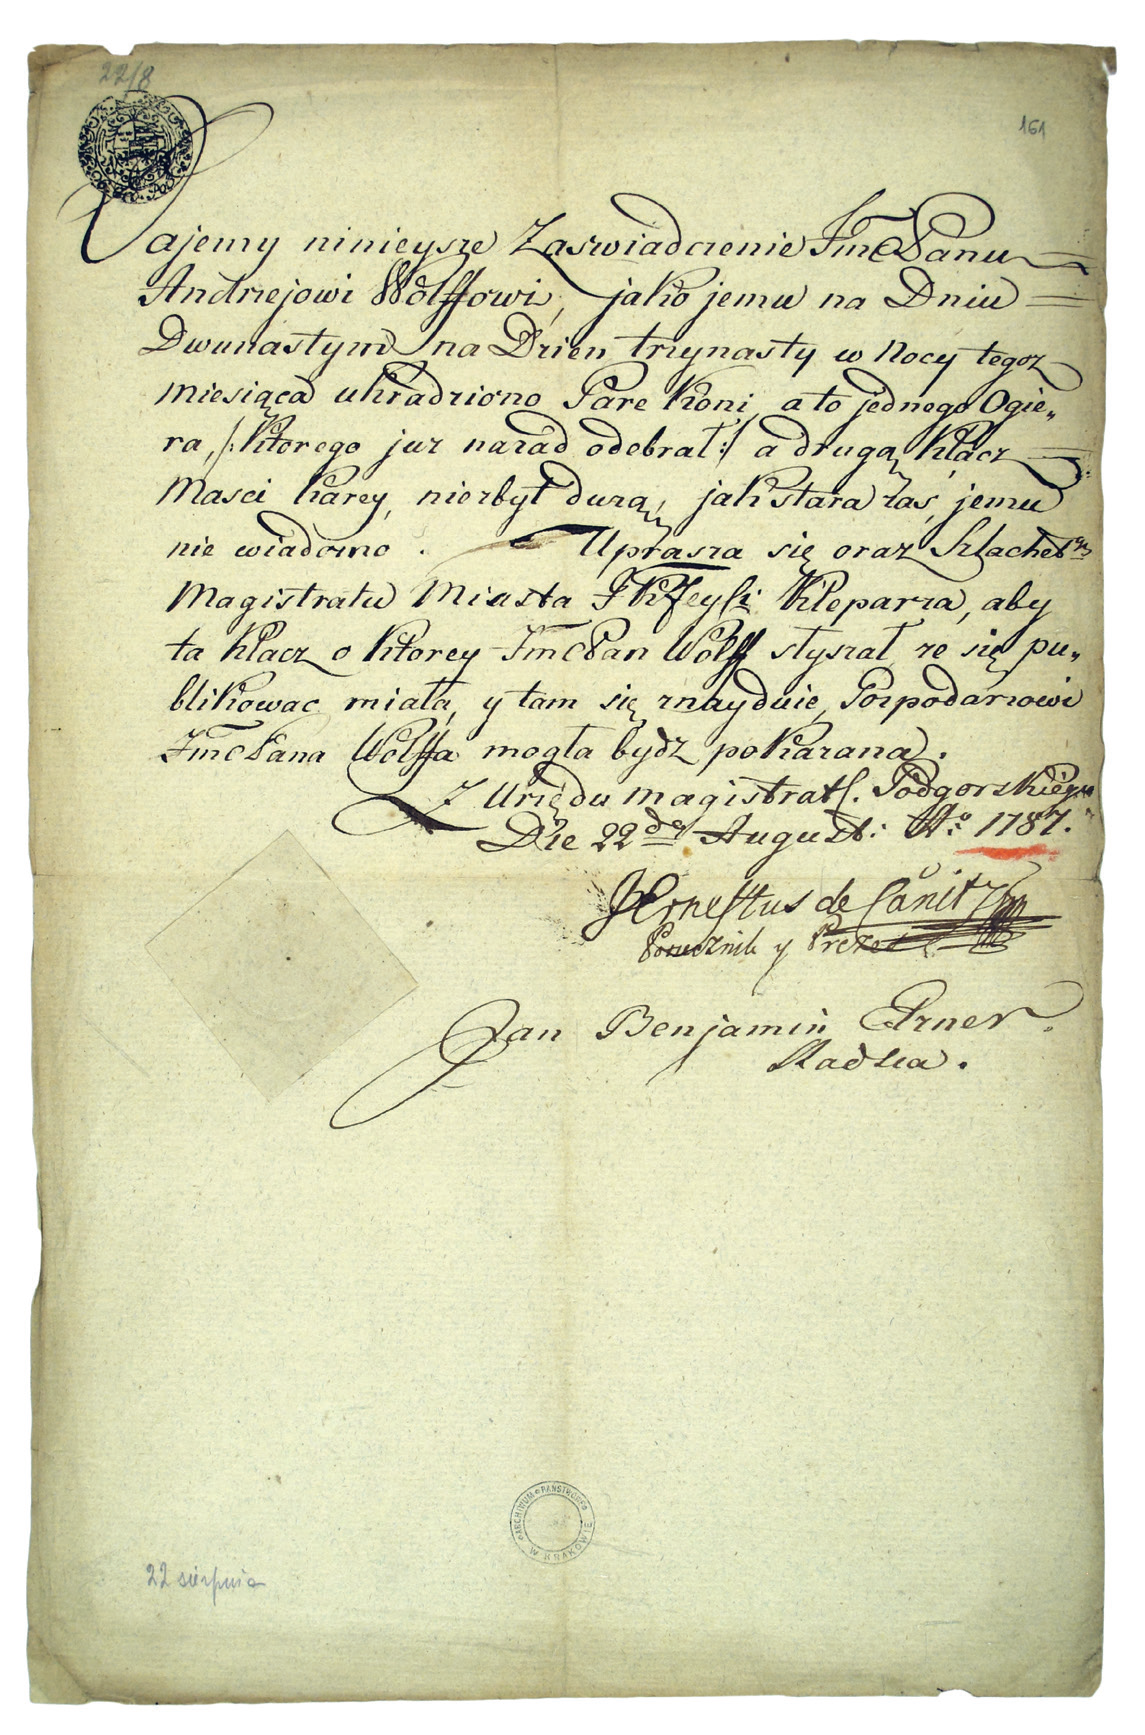 22/8
161
Dajemy ninieysze Zaswiadczenie JmcPanu
Andrzejowi Wolffowi, jako jemu na Dniu
Dwunastym na Dzien trzynasty w Nocy tegoz
miesiąca ukradziono Pare Koni, a to jednego Ogie„
ra, /: Ktorego juz nazad odebrał :/ a drugą Kłacz
Masci Karey, niezbyt durzą, jak stara zas, jemu
nie wiadomo. Uprasza się oraz Szlachet
Magistratu Miasta Kleparza, aby
ta Klacz o Ktorey JmcPan Wolff słyszał ze się pu„
blikowac miała, y tam się znayduie, Gospodarzowi
JmcPana Wolffa mogła bydz pokazana.
Z Urzędu Magistrats. Podgorskiego
Die 22da August: Ao: 1787.
Ernestus de Canitz
Porucznik y Prezes
Jan Benjamin Erner
Radzca.
ARCHIWUM PAŃSTWOWE W KRAKOWIE
22 sierpnia